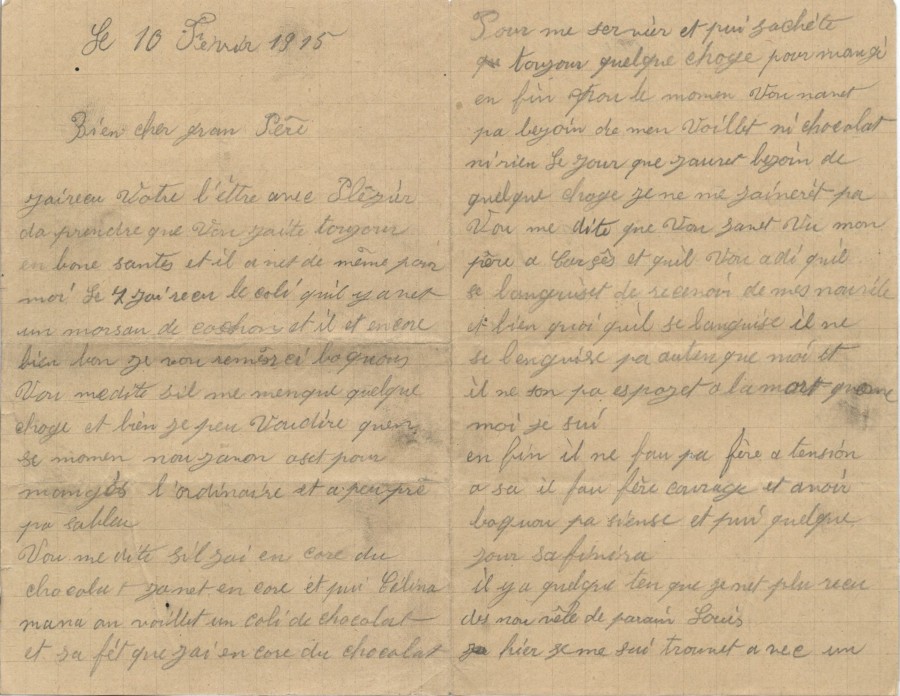 Le 10 Février 1915
Bien cher gran Père
jai recu Votre l'êttre avec Plêzir
da prendre que Vou zaite torjour
en bone santes et il a net de même pour
moi Le 7 jai recu le coli quil y a net
un morsau de cochon et il et encore
bien bon je vou remêrci baquou
Vou me dite sil me menque quelque
choge et bien je peu Vou dire quen
se momen nou zanon aset pour
mangés l'ordinaire et a peu prê
pa sableu
Vou me dite sil jai en core du
chocolat zanet en core et pui Célina
mana an voillet un coli de chocolat
et sa fét que jai en core du chocolat
Pour me servier et pui sachéte
torjour quelque choge pour mangé
en fin pou le momen Vou navet
pa bejoin de men Voillet ni chocolat
ni rien Le jour que jauret bezoin de
quelque choge je ne me jainerêt pa
Vou me dite que Vou zavet Vu mon
père a Carsês et quil Vou a di quil
se languiset de recevoir de mes nouvéle
et bien quoi quil se languise il ne
se lenguise pa auten que moi et
il ne son pa espozet a la mort que me
moi je sui
en fin il ne fau pa fère a tensión
a sa il fau fére courage et avoir
baquou pa siense et pui quelque
jour sa finira
il y a quelque ten que je net plu recu
des nou vêle de parain Louis
hier je me sui trouvet a vec un